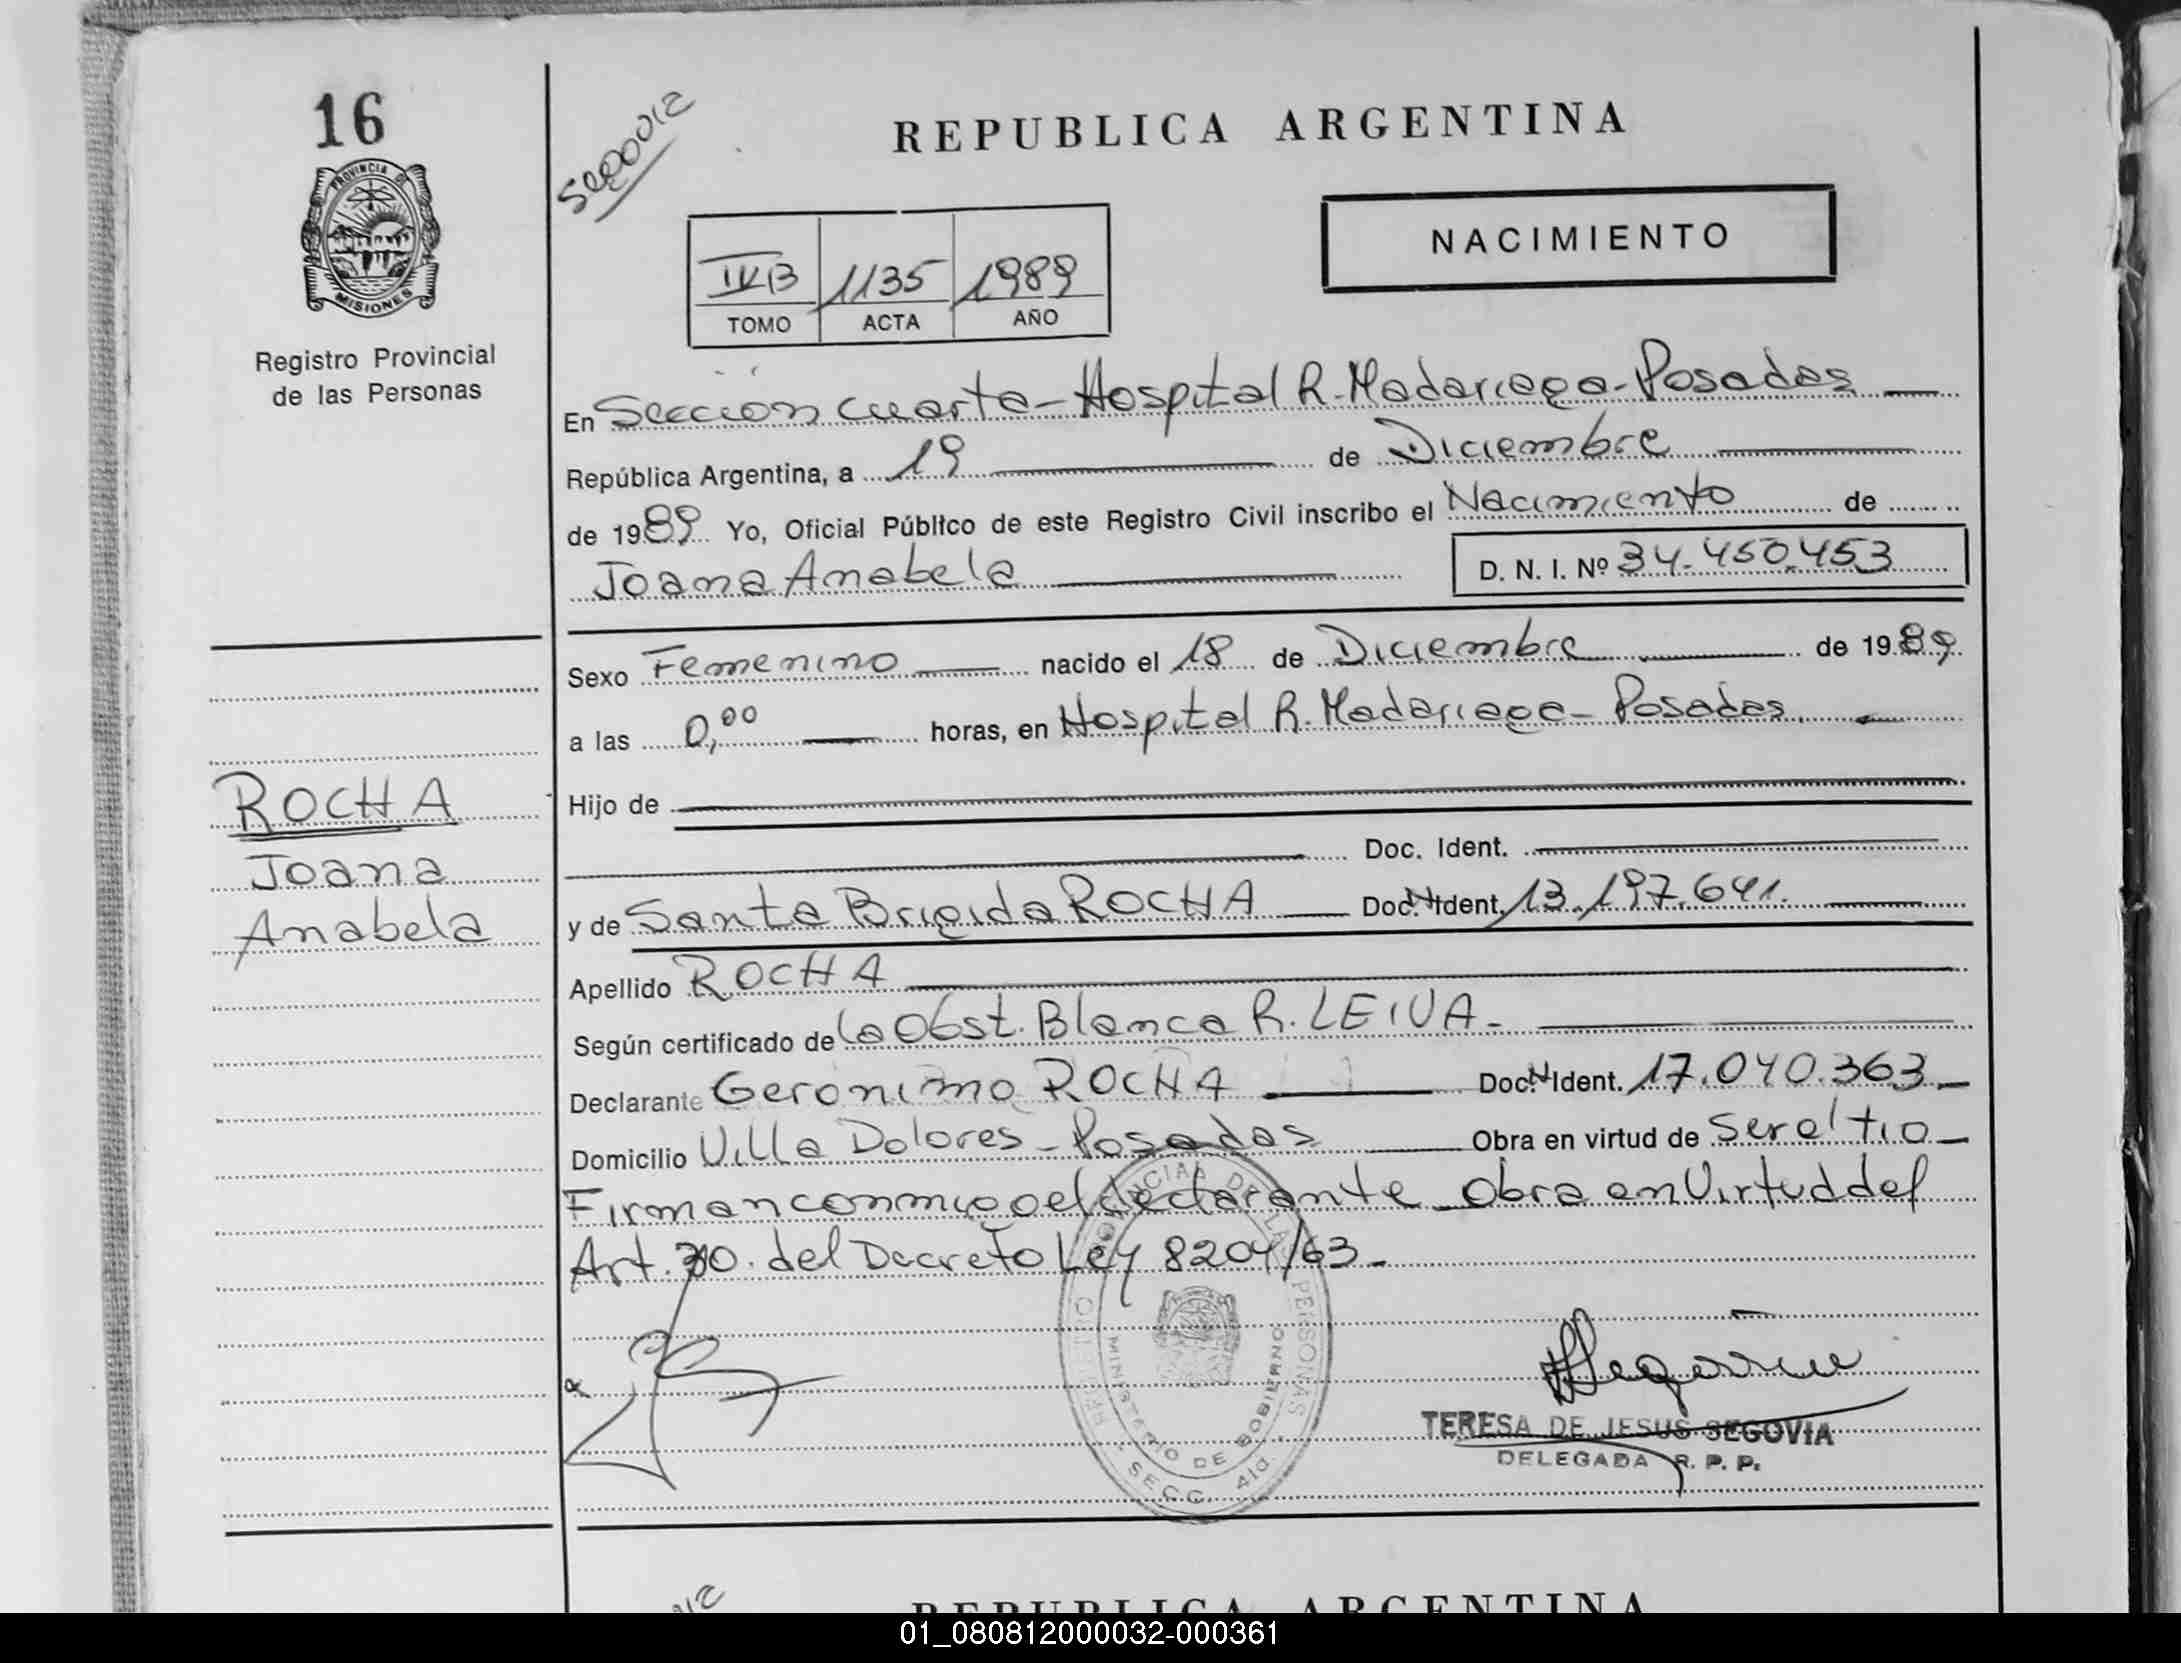 16
PROVINCIA DE
MISIONES
Registro Provincial
de las Personas
REPUBLICA ARGENTINA
NACIMIENTO
IVB 1135 1989
TOMO ACTA AÑO
En Seccion Cuarta - Hospital R. Madariaga - Posadas
República Argentina, a 19 de Diciembre
de 1989 Yo, Oficial Público de este Registro Civil inscribo el Nacimiento de
Joana Anabela D. N. I. Nº 34.450.453
Sexo Femenino nacido el 18 de Diciembre de 1989
a las 0,00 horas, en Hospital R. Madariaga - Posadas.
Hijo de
Doc. Ident.
y de Santa Brigida ROCHA Doc. N Ident. 13.197.641.
Apellido ROCHA
Según certificado de la Obst. Blanca R. LEIVA -
Declarante Geronimo ROCHA Doc. N Ident. 17.040.363
Domicilio Villa Dolores - Posadas Obra en virtud de Ser el tio
Firman conmigo el declarante Obra en Virtud del
Art. 30. del Decreto Ley 8204/63 -
ROCHA
Joana
Anabela
REGISTRO PROVINCIAL DE LAS PERSONAS
MINISTERIO DE GOBIERNO
SECC. 4ta.
Segovia
TERESA DE JESUS SEGOVIA
DELEGADA R. P. P.
REPUBLICA ARGENTINA
01_080812000032-000361